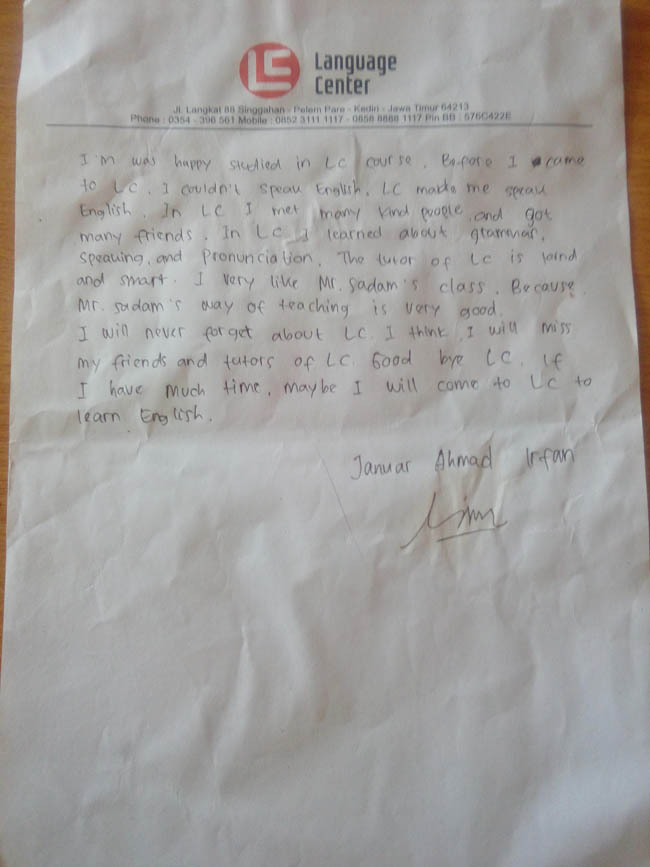 LC Language
Center
Jl. Langkat 88 Singgahan - Pelem Pare - Kediri - Jawa Timur 64213
Phone : 0354 - 396 561 Mobile : 0852 3111 1117 - 0858 8868 1117 Pin BB : 576C422E
I'm was happy studied in LC course. Before I came
to LC. I couldn't speak English. LC made me speak
English. In LC I met many kind people and got
many friends. In LC I learned about grammar,
speaking, and pronunciation. The tutor of LC is kind
and smart. I very like Mr. Sadam's class. Because
Mr. Sadam's way of teaching is very good.
I will never forget about LC. I think I will miss
my friends and tutors of LC. Good bye LC. If
I have much time, maybe I will come to LC to
learn English.
Januar Ahmad Irfan